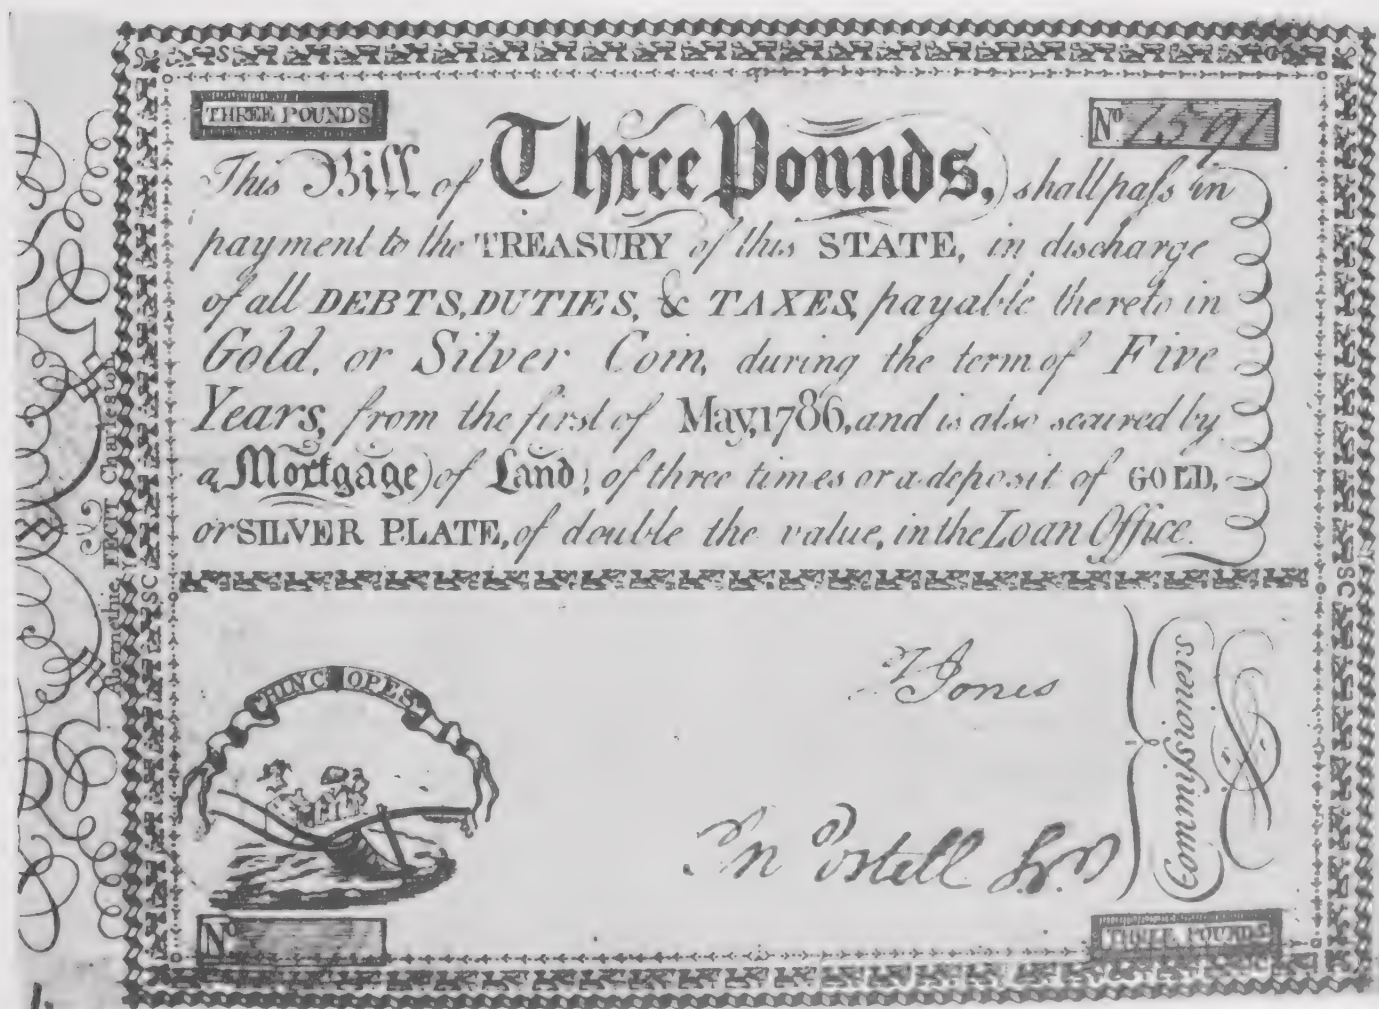 THREE POUNDS
No
This Bill of Three Pounds, shall paſs in
payment to the TREASURY of this STATE, in discharge
of all DEBTS, DUTIES, & TAXES, payable thereto in
Gold, or Silver Coin, during the term of Five
Years, from the first of May, 1786, and is also secured by
a Mortgage of Land; of three times or a deposit of GOLD,
or SILVER PLATE, of double the value, in the Loan Office.
HINC OPES
Jones
Postell
Commiſsioners
No
THREE POUNDS
Abernethie FECIT Charleston
SC
SC